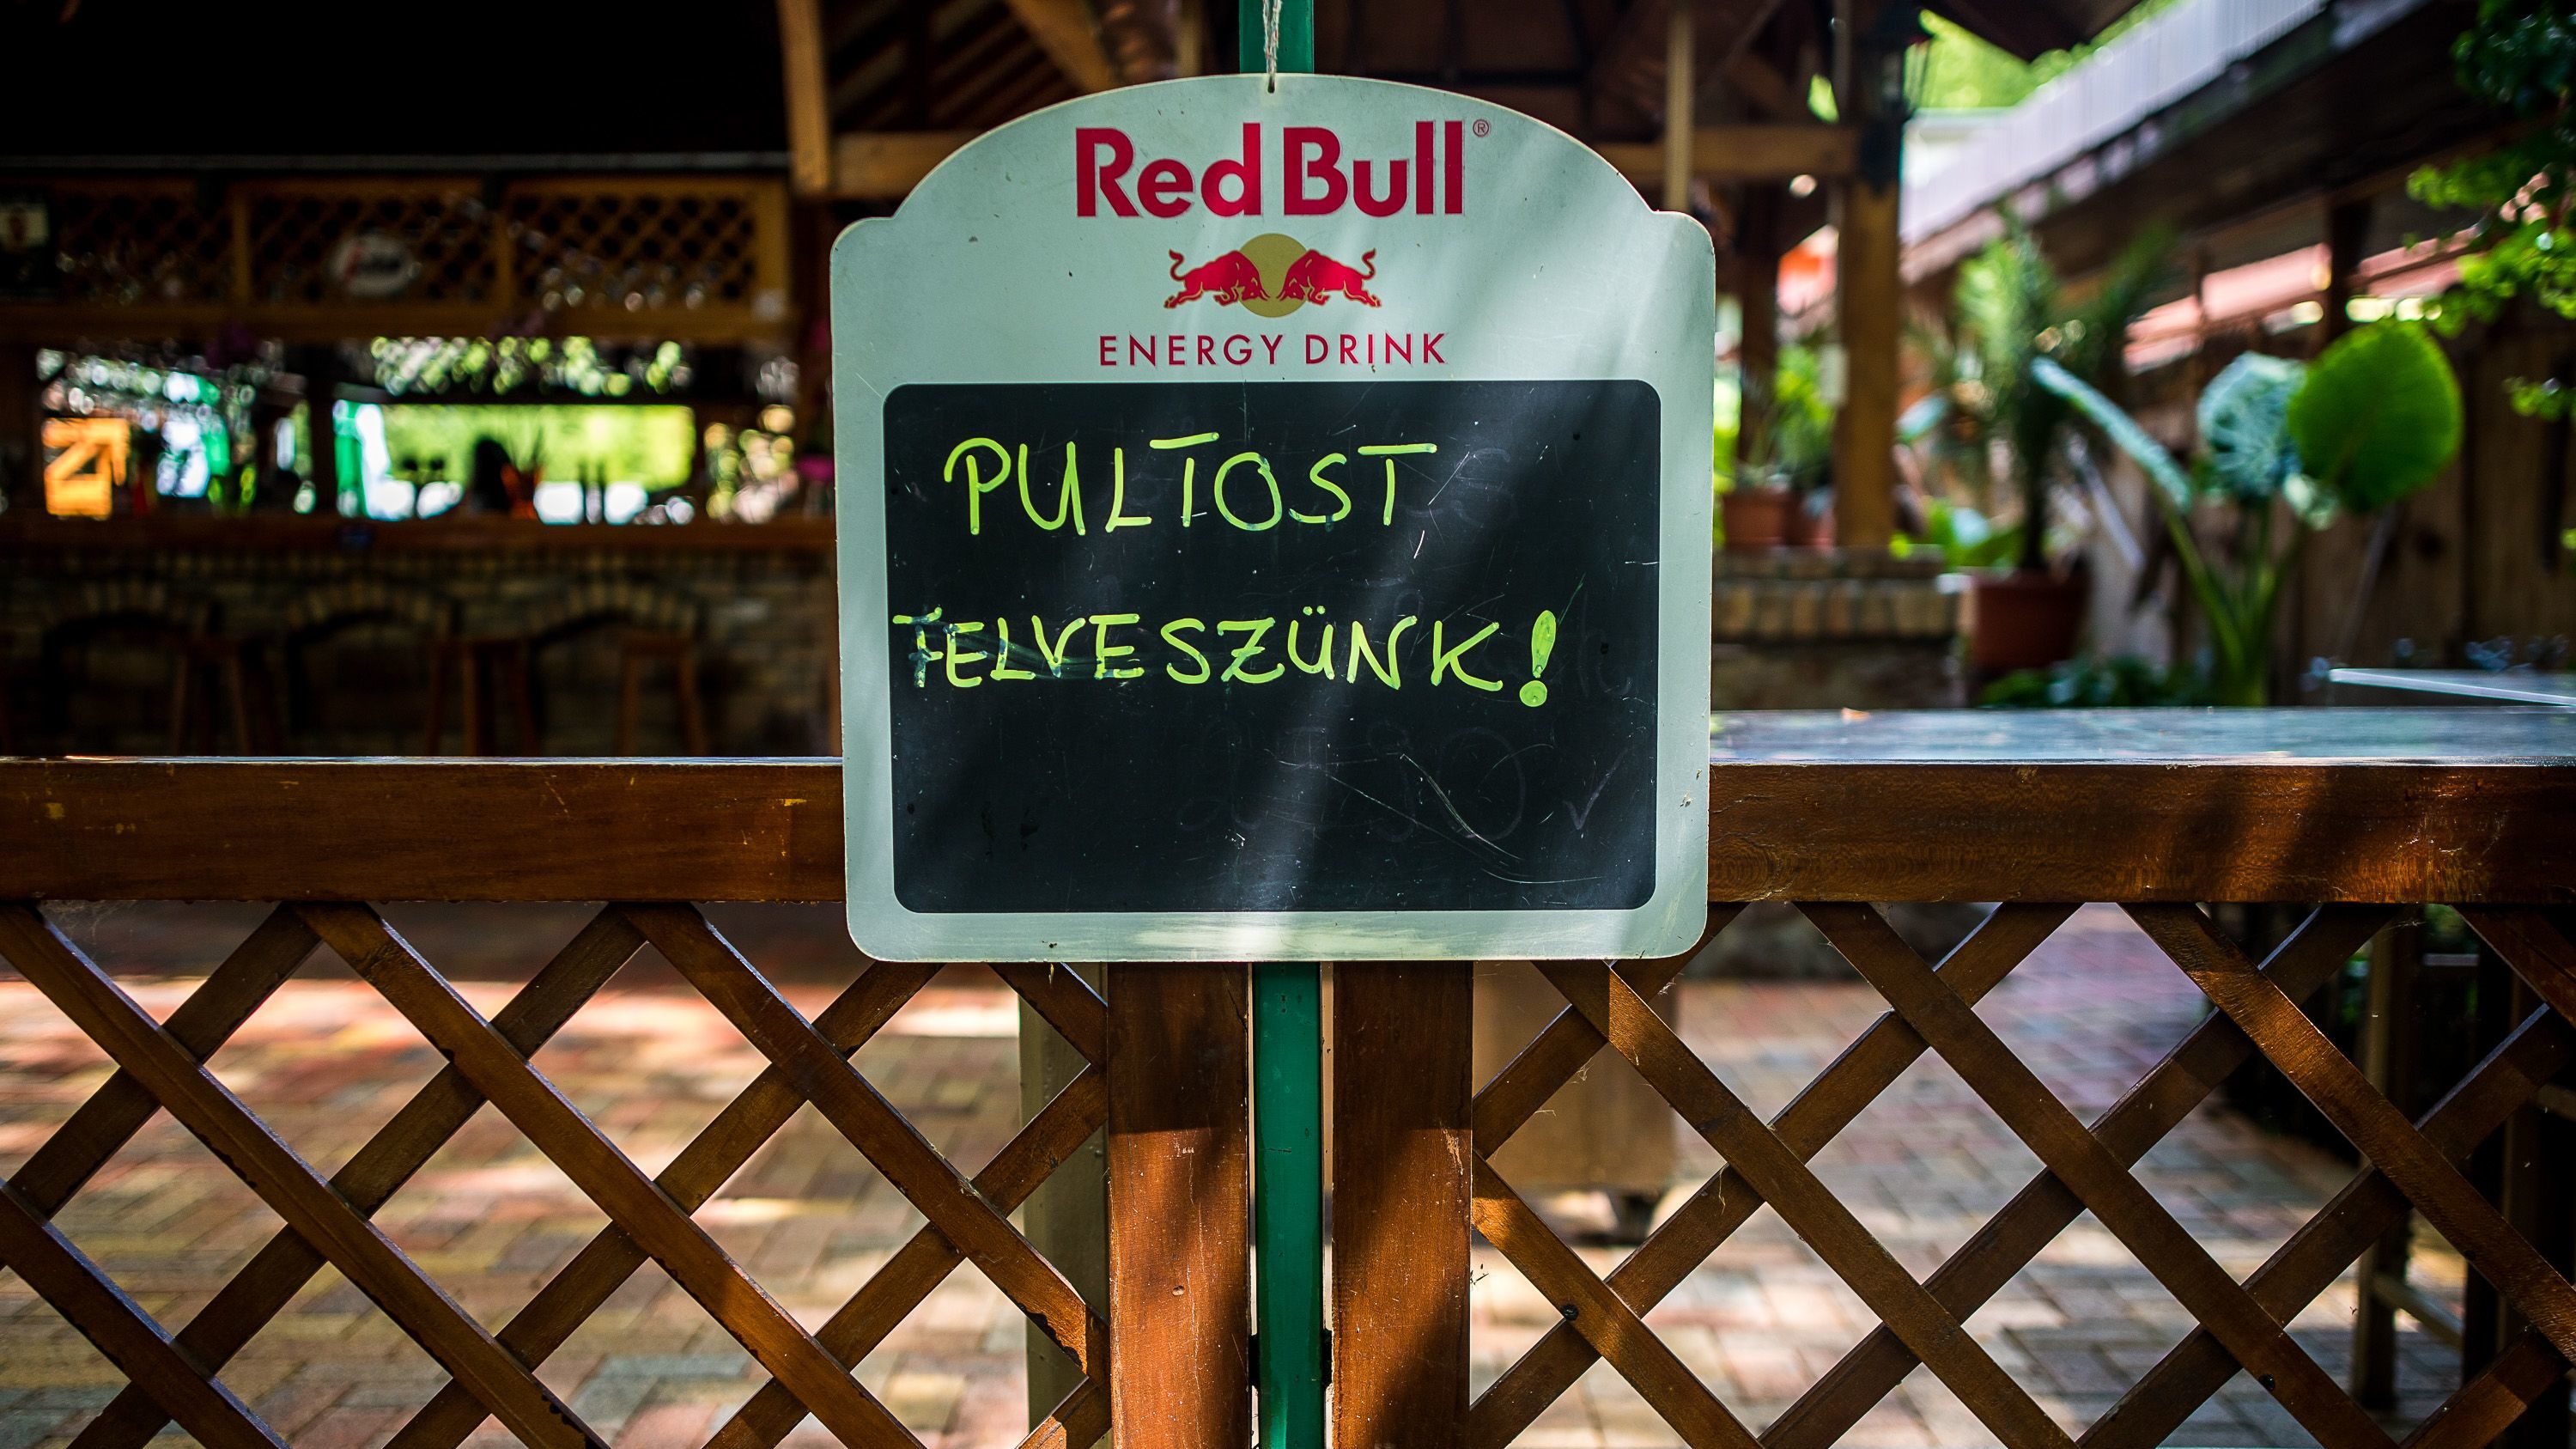 Red Bull®
ENERGY DRINK
PULTOST
FELVESZÜNK!